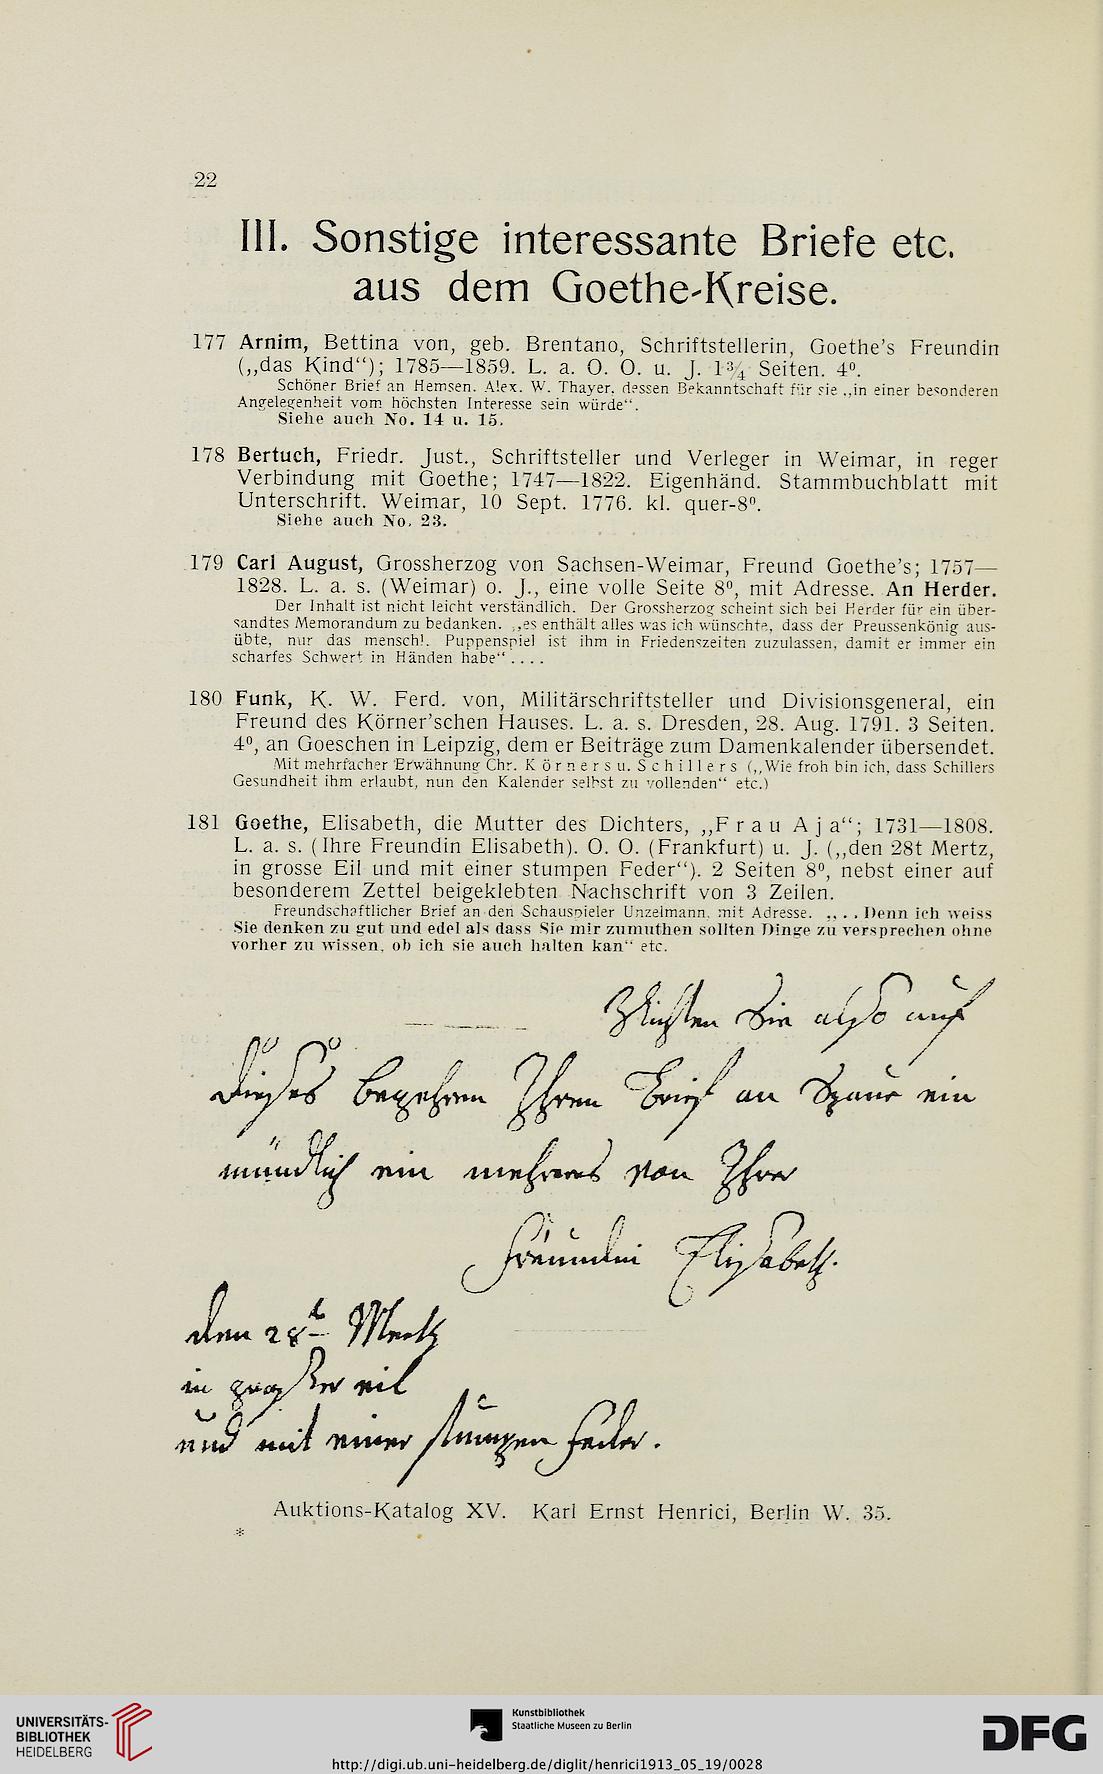 22
III. Sonstige interessante Briefe etc.
aus dem Goethe-Kreise.
177 Arnim, Bettina von, geb. Brentano, Schriftstellerin, Goethe's Freundin
(„das Kind“); 1785—1859. L. a. O. O. u. J. 1¾ Seiten. 4⁰.
Schöner Brief an Hemsen. Alex. W. Thayer, dessen Bekanntschaft für sie „in einer besonderen
Angelegenheit vom höchsten Interesse sein würde“.
Siehe auch No. 14 u. 15.
178 Bertuch, Friedr. Just., Schriftsteller und Verleger in Weimar, in reger
Verbindung mit Goethe; 1747—1822. Eigenhänd. Stammbuchblatt mit
Unterschrift. Weimar, 10 Sept. 1776. kl. quer-8⁰.
Siehe auch No. 23.
179 Carl August, Grossherzog von Sachsen-Weimar, Freund Goethe's; 1757—
1828. L. a. s. (Weimar) o. J., eine volle Seite 8⁰, mit Adresse. An Herder.
Der Inhalt ist nicht leicht verständlich. Der Grossherzog scheint sich bei Herder für ein über-
sandtes Memorandum zu bedanken. „es enthält alles was ich wünschte, dass der Preussenkönig aus-
übte, nur das menschl. Puppenspiel ist ihm in Friedenszeiten zuzulassen, damit er immer ein
scharfes Schwert in Händen habe“ . . . .
180 Funk, K. W. Ferd. von, Militärschriftsteller und Divisionsgeneral, ein
Freund des Körner'schen Hauses. L. a. s. Dresden, 28. Aug. 1791. 3 Seiten.
4⁰, an Goeschen in Leipzig, dem er Beiträge zum Damenkalender übersendet.
Mit mehrfacher Erwähnung Chr. Körners u. Schillers („Wie froh bin ich, dass Schillers
Gesundheit ihm erlaubt, nun den Kalender selbst zu vollenden“ etc.)
181 Goethe, Elisabeth, die Mutter des Dichters, „Frau Aja“; 1731—1808.
L. a. s. (Ihre Freundin Elisabeth). O. O. (Frankfurt) u. J. („den 28t Mertz,
in grosse Eil und mit einer stumpen Feder“). 2 Seiten 8⁰, nebst einer auf
besonderem Zettel beigeklebten Nachschrift von 3 Zeilen.
Freundschaftlicher Brief an den Schauspieler Unzelmann, mit Adresse. „. . Denn ich weiss
Sie denken zu gut und edel als dass Sie mir zumuthen sollten Dinge zu versprechen ohne
vorher zu wissen, ob ich sie auch halten kan“ etc.
Sie also auf
dießes begehren Ihren Brief an ein
mündlich ein mehreres von Ihrer
Freundin Elisabeth.
den 28t Mertz
in großer eil
und mit einer stumpen Feder.
Auktions-Katalog XV. Karl Ernst Henrici, Berlin W. 35.
*
UNIVERSITÄTS-
BIBLIOTHEK
HEIDELBERG
Kunstbibliothek
Staatliche Museen zu Berlin
DFG
http://digi.ub.uni-heidelberg.de/diglit/henrici1913_05_19/0028